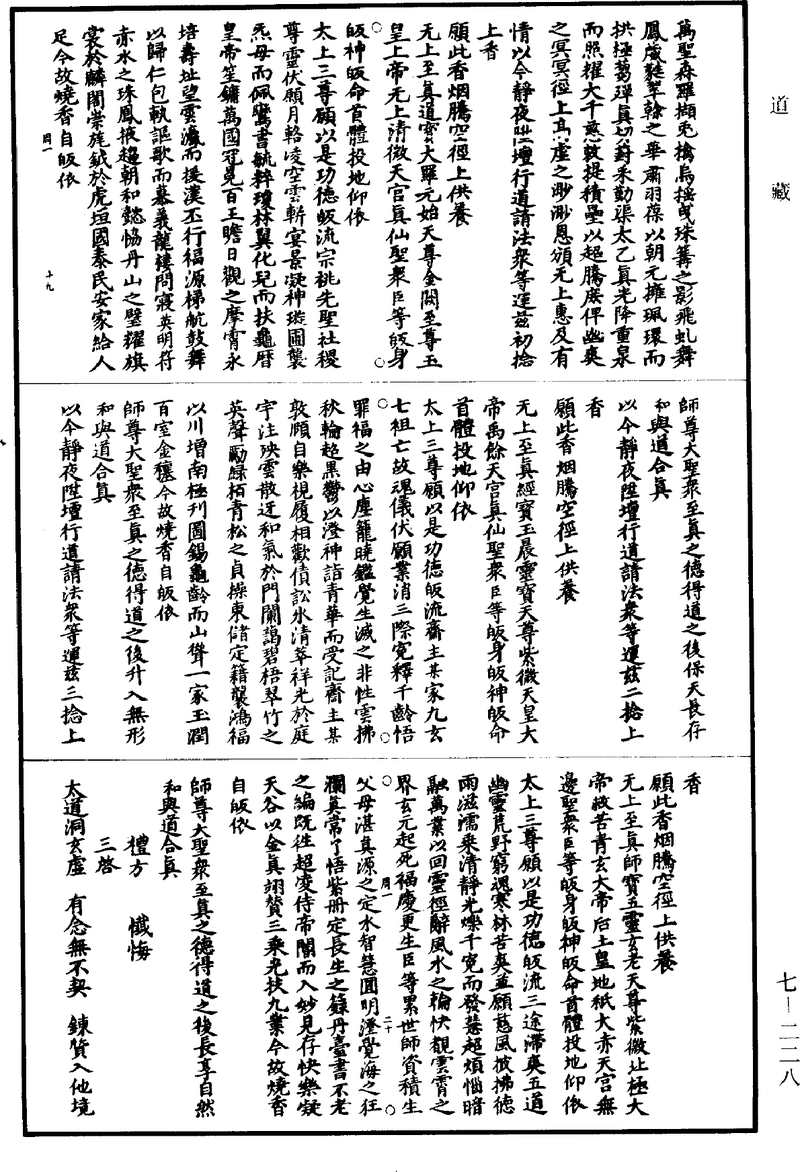 道藏
萬聖森羅擷兎擒烏搖曵珠篝之影飛虬舞
鳳葳蕤翠翰之華肅羽葆以朝元擁珮環而
拱極蒭殫真切蔚來勤渠太乙真光降重泉
而照耀大千慈救提積壘以超騰庶俾幽爽
之冥冥徑上高虛之渺渺恩頒无上惠及有
情以今靜夜陞壇行道請法衆等運兹初捻
上香
願此香烟騰空徑上供養
无上至真道寳大羅元始天尊金闕至尊玉
皇上帝无上清微天宫真仙聖衆臣等皈身
皈神皈命首體投地仰依
太上三尊願以是功德皈流宗祧先聖社稷
尊靈伏願月輅凌空雲軿宴景凝神璇圃襲
炁母而佩鸞書毓粹瓊林翼化兒而扶龜曆
皇帝笙鏞萬國冠冕百王瞻日觀之摩霄永
培壽址望雲瀛而援漢丕行福源梯航鼓舞
以歸仁包匭謳歌而慕義龍樓問寢英明符
赤水之珠鳳掖趨朝和懿恊丹山之璧耀旗
裳於麟閣崇旄鉞於虎垣國泰民安家給人
足今故燒香自皈依
月一 十九
師尊大聖衆至真之德得道之後保天長存
和與道合真
以今靜夜陞壇行道請法衆等運兹二捻上
香
願此香烟騰空徑上供養
无上至真經寳玉晨靈寳天尊紫微天皇大
帝禹餘天宫真仙聖衆臣等皈身皈神皈命
首體投地仰依
太上三尊願以是功德皈流齋主某家九玄
七祖亡故魂儀伏願業消三際寃釋千齡悟
罪福之由心塵籠曉鑑覺生滅之非性雲拂
秋輪超黑鬱以澄神詣青華而受記齋主某
敦頤自樂視履相歡債訟氷清萃祥光於庭
宇注殃雲散迓和氣於門闌藹碧梧翠竹之
英聲勵緑栢青松之貞操東儲定籍襲鴻福
以川增南極刋圖錫龜齡而山聳一家玉潤
百室金穰今故燒香自皈依
師尊大聖衆至真之德得道之後升入無形
和與道合真
以今靜夜陞壇行道請法衆等運兹三捻上
香
願此香烟騰空徑上供養
无上至真師寳五靈玄老天尊紫微北極大
帝救苦青玄大帝后土皇地祇大赤天宫無
邊聖衆臣等皈身皈神皈命首體投地仰依
太上三尊願以是功德皈流三途滯爽五道
幽靈荒野窮魂寒林苦爽並願慈風披拂德
雨滋濡乘清靜光爍千寃而發慧超煩惱暗
融萬業以回靈徑辭風水之輪快覩雲霄之
界玄元起死福慶更生臣等累世師資積生
月一 二十
父母湛真源之定水智慧圓明澄覺海之狂
瀾真常了悟紫册定長生之籙丹臺書不老
之編既徃超凌侍帝閽而入妙見存快樂凝
天谷以金真翊賛三乘光扶九業今故燒香
自皈依
師尊大聖衆至真之德得道之後長享自然
和與道合真
禮方 懺悔
三啓
太道洞玄虛 有念無不契 鍊質入仙境
七－二二八